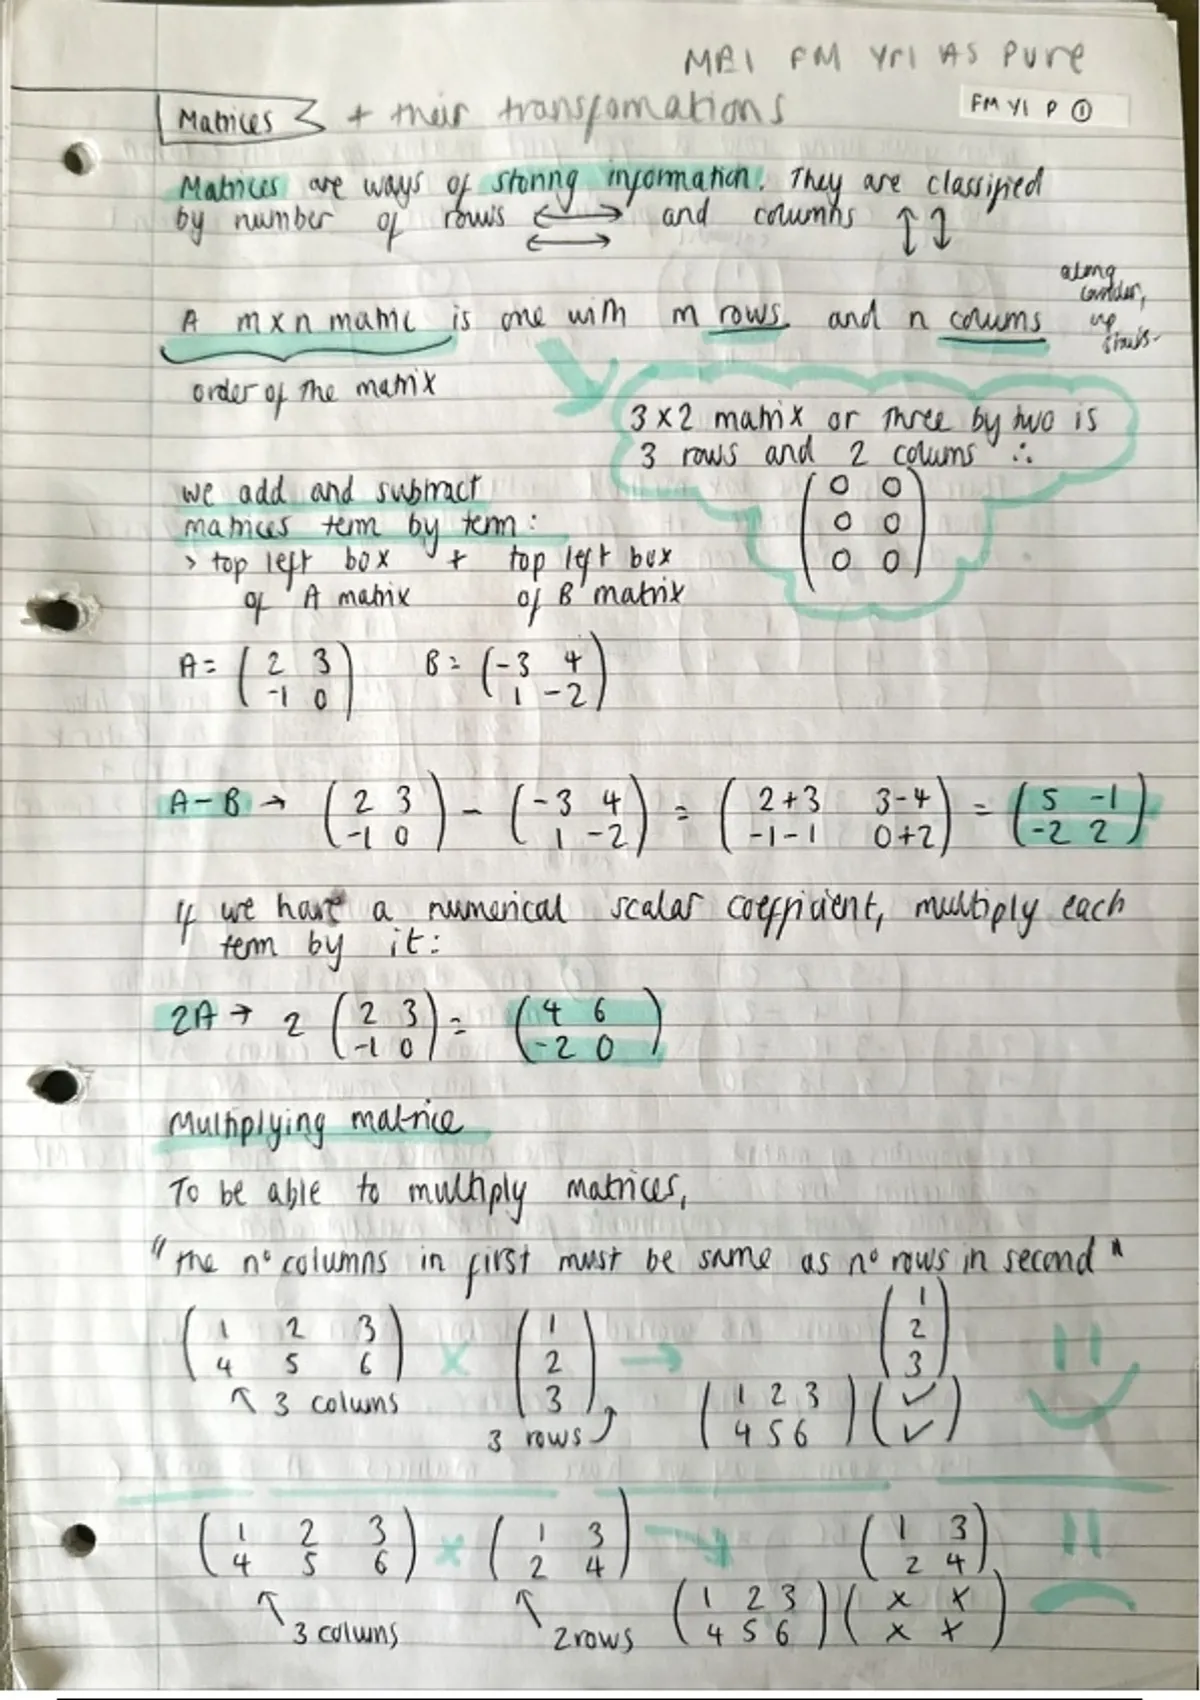 MEI FM Yr1 AS Pure
Matrices + their transfomations
FM Y1 P ①
Matrices are ways of storing information. They are classified
by number of rows ⟷ and columns ↑↓
⟷
along
corridor,
up
stairs
A m×n matric is one with m rows and n colums
order of the matrix
3×2 matrix or three by two is
3 rows and 2 colums ∴
(0 0
0 0
0 0)
we add and subtract
matrices term by term:
> top left box + top left box
of A matrix of B matrix
A = (2 3 B = (-3 4
-1 0) 1 -2)
A-B → (2 3 - (-3 4 = (2+3 3-4 = (5 -1
-1 0) 1 -2) -1-1 0+2) -2 2)
If we have a numerical scalar coefficient, multiply each
term by it:
2A → 2 (2 3 = (4 6
-1 0) -2 0)
Multiplying matrice
To be able to multiply matrices,
"the nº columns in first must be same as nº rows in second"
(1 2 3 × (1 → (1
4 5 6) 2 2
3) 3)
↖ 3 colums
3 rows
(1 2 3 (✓
4 5 6) ✓)
(1 2 3 × (1 3 → (1 3
4 5 6) 2 4) 2 4)
↖ 3 colums ↖ 2 rows
(1 2 3 (× ×
4 5 6) × ×)